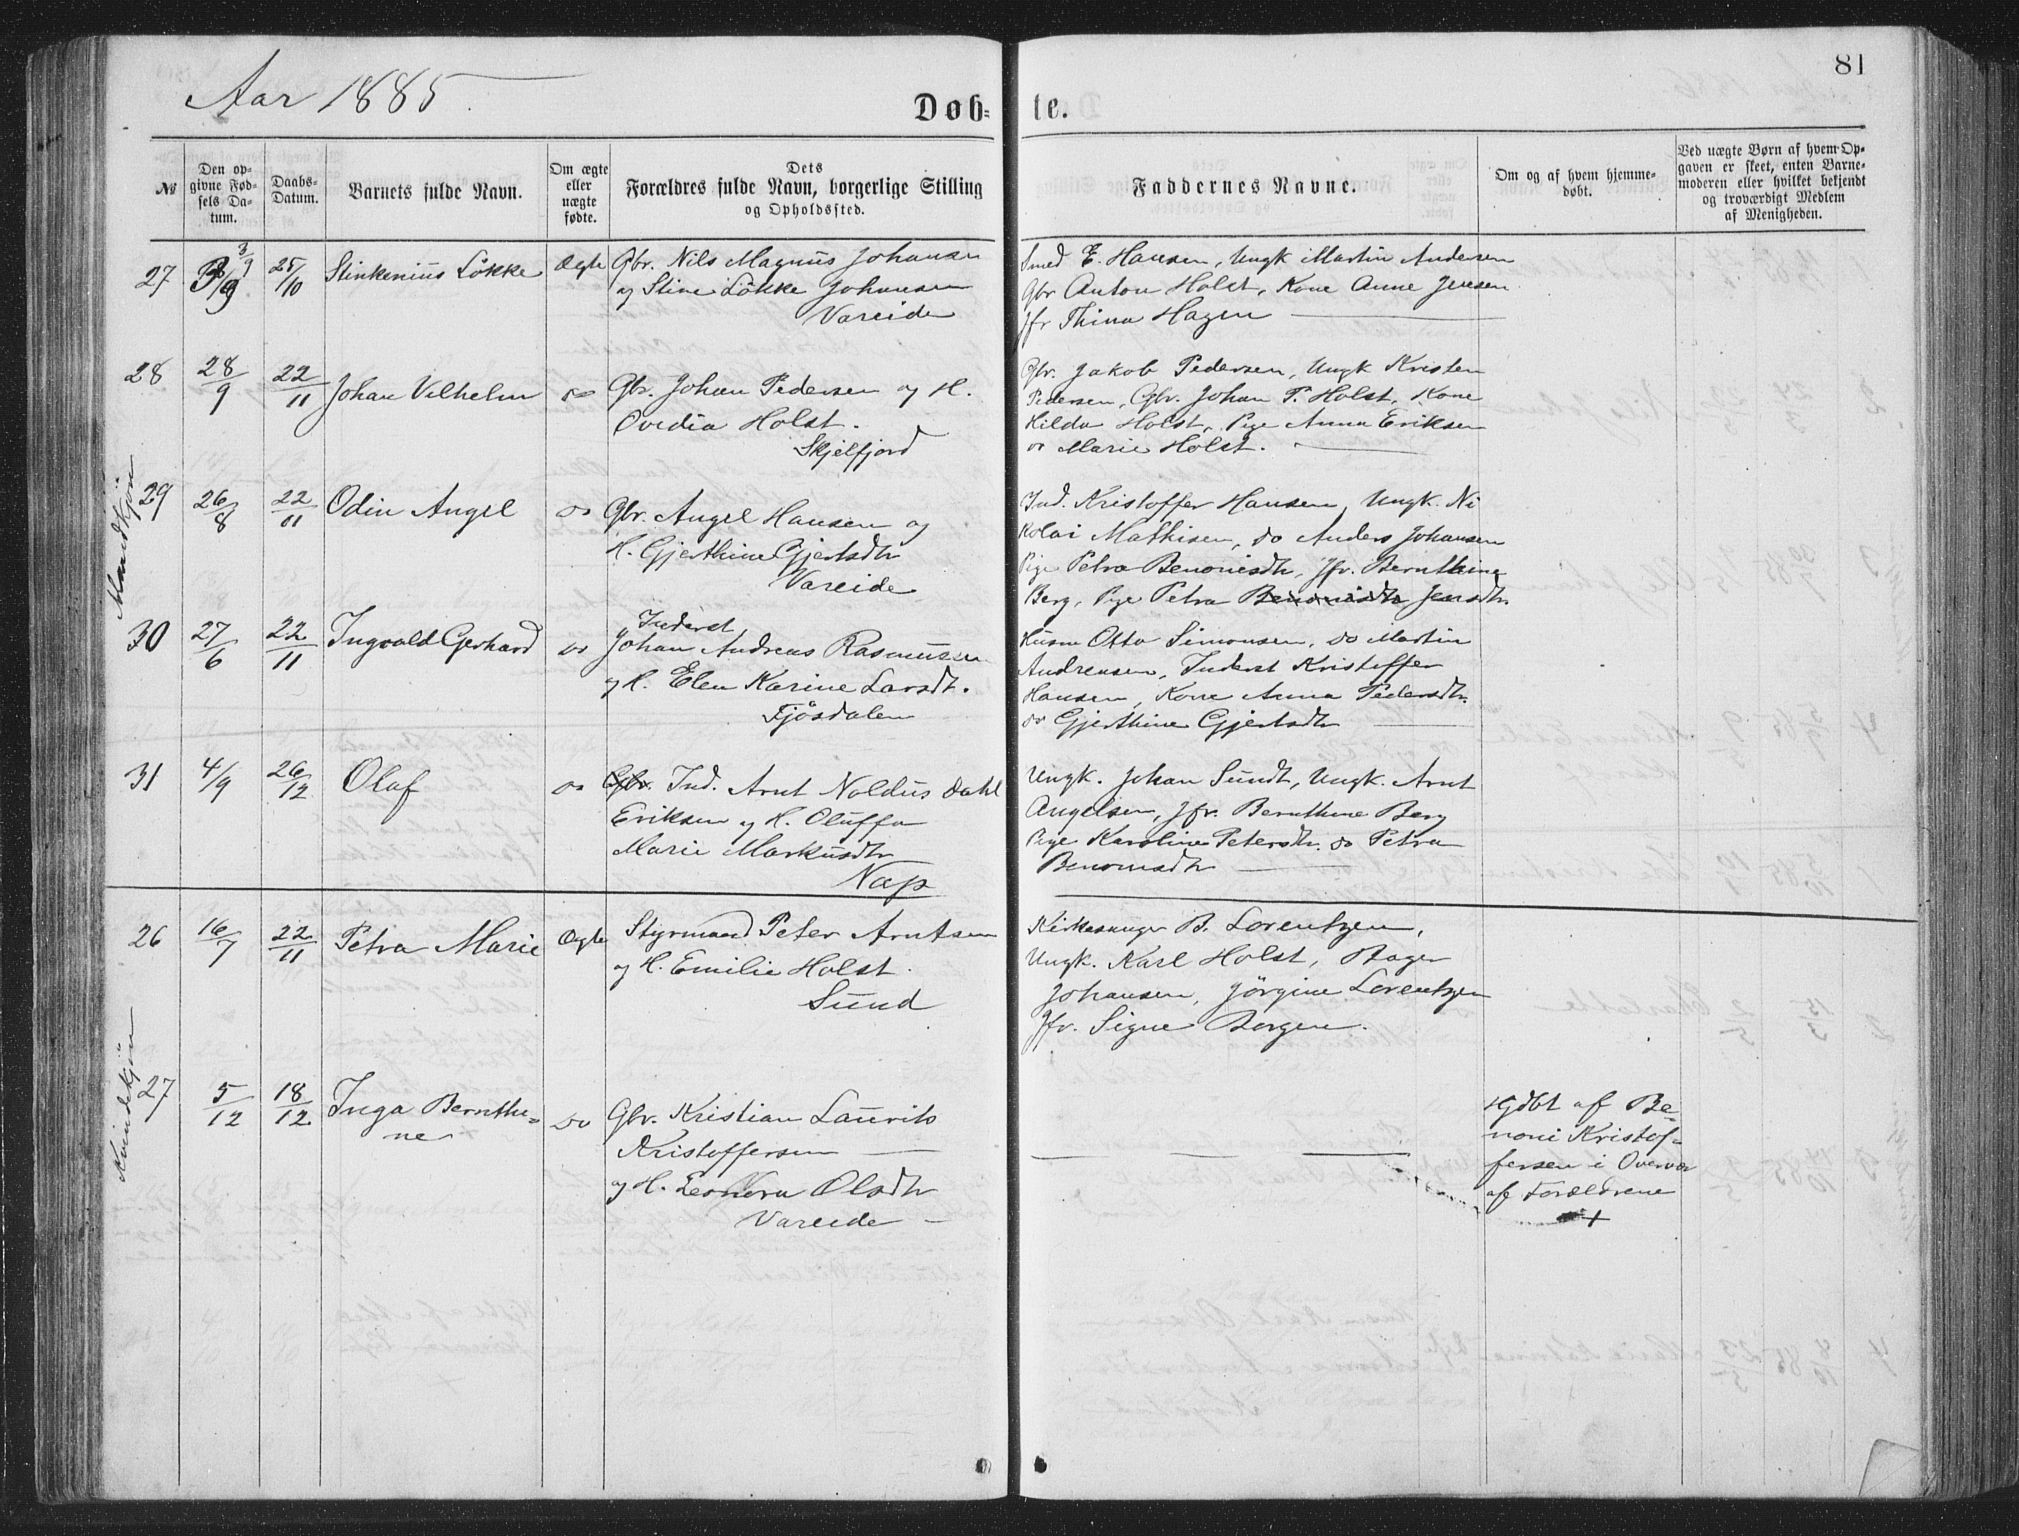 Aar 1885
81
Døb-
te.
№
Den op-
givne Fød-
sels Da-
tum.
Daabs-
Datum.
Barnets fulde Navn.
Om ægte
eller
uægte
fødte.
Dets
Forældres fulde Navn, borgerlige Stilling
og Opholdssted.
Faddernes Navne.
Om og af hvem hjemme-
døbt.
Ved uægte Børn af hvem Op-
gaven er skeet, enten Barne-
moderen eller hvilket bekjendt
og troværdigt Medlem
af Menigheden.
Mandkjön
27
3/9
25/10
Stinkenius Lökke
Ægte
Gbr. Nils Magnus Johansen
og Stine Lökke Johansen
Vareide
Smed E. Hansen, Ungk Martin Andersen
Gbr Anton Holst, Kone Anne Jensen
Jfr Thina Hagen
28
28/9
22/11
Johan Vilhelm
do
Gbr. Johan Pedersen og H.
Ovedia Holst.
Skjelfjord
Gbr. Jakob Pedersen, Ungk Kristen
Pedersen, Gbr. Johan P. Holst, Kone
Hilda Holst, Pige Anna Eriksen
do Marie Holst.
29
26/8
22/11
Odin Angel
do
Gbr. Angel Hansen og
H. Gjerthine Gjertsdtr
Vareide
Ind. Kristoffer Hansen, Ungk. Ni
kolai Mathisen, do Anders Johansen
Pige Petra Benonisdtr, Jfr. Bernthine
Berg, Pige Petra Benonisdtr Jensdtr
30
27/6
22/11
Ingvald Gerhard
do
Inderst
Johan Andreas Rasmussen
og H. Elen Karine Larsdtr.
Fjösdalen
Husm Otto Simonsen, do Martin
Andreasen, Inderst Kristoffer
Hansen, Kone Anna Pedersdtr.
do Gjerthine Gjertsdtr
31
4/9
26/12
Olaf
do
Gbr. Ind. Arnt Noldus Dahl
Eriksen og H. Oluffa
Marie Markusdtr
Nap
Ungk. Johan Sundt, Ungk. Arnt
Angelsen, Jfr. Bernthine Berg
Pige Karoline Petersdtr. do Petra
Benonisdtr
Kvindekjön
26
16/7
22/11
Petra Marie
Ægte
Styrmand Peter Arntsen
og H. Emilie Holst.
Sund
Kirkesanger B. Lorentzen,
Ungk. Karl Holst, Bager
Johansen, Jörgine Lorentzen
Jfr. Signe Borgen.
27
5/12
18/12
Inga Bernthi-
ne
do
Gbr. Kristian Laurits
Kristoffersen
og H. Leonora Olsdtr
Vareide
Hjdbt af Be-
noni Kristof-
fersen i Overvær
af Forældrene
+